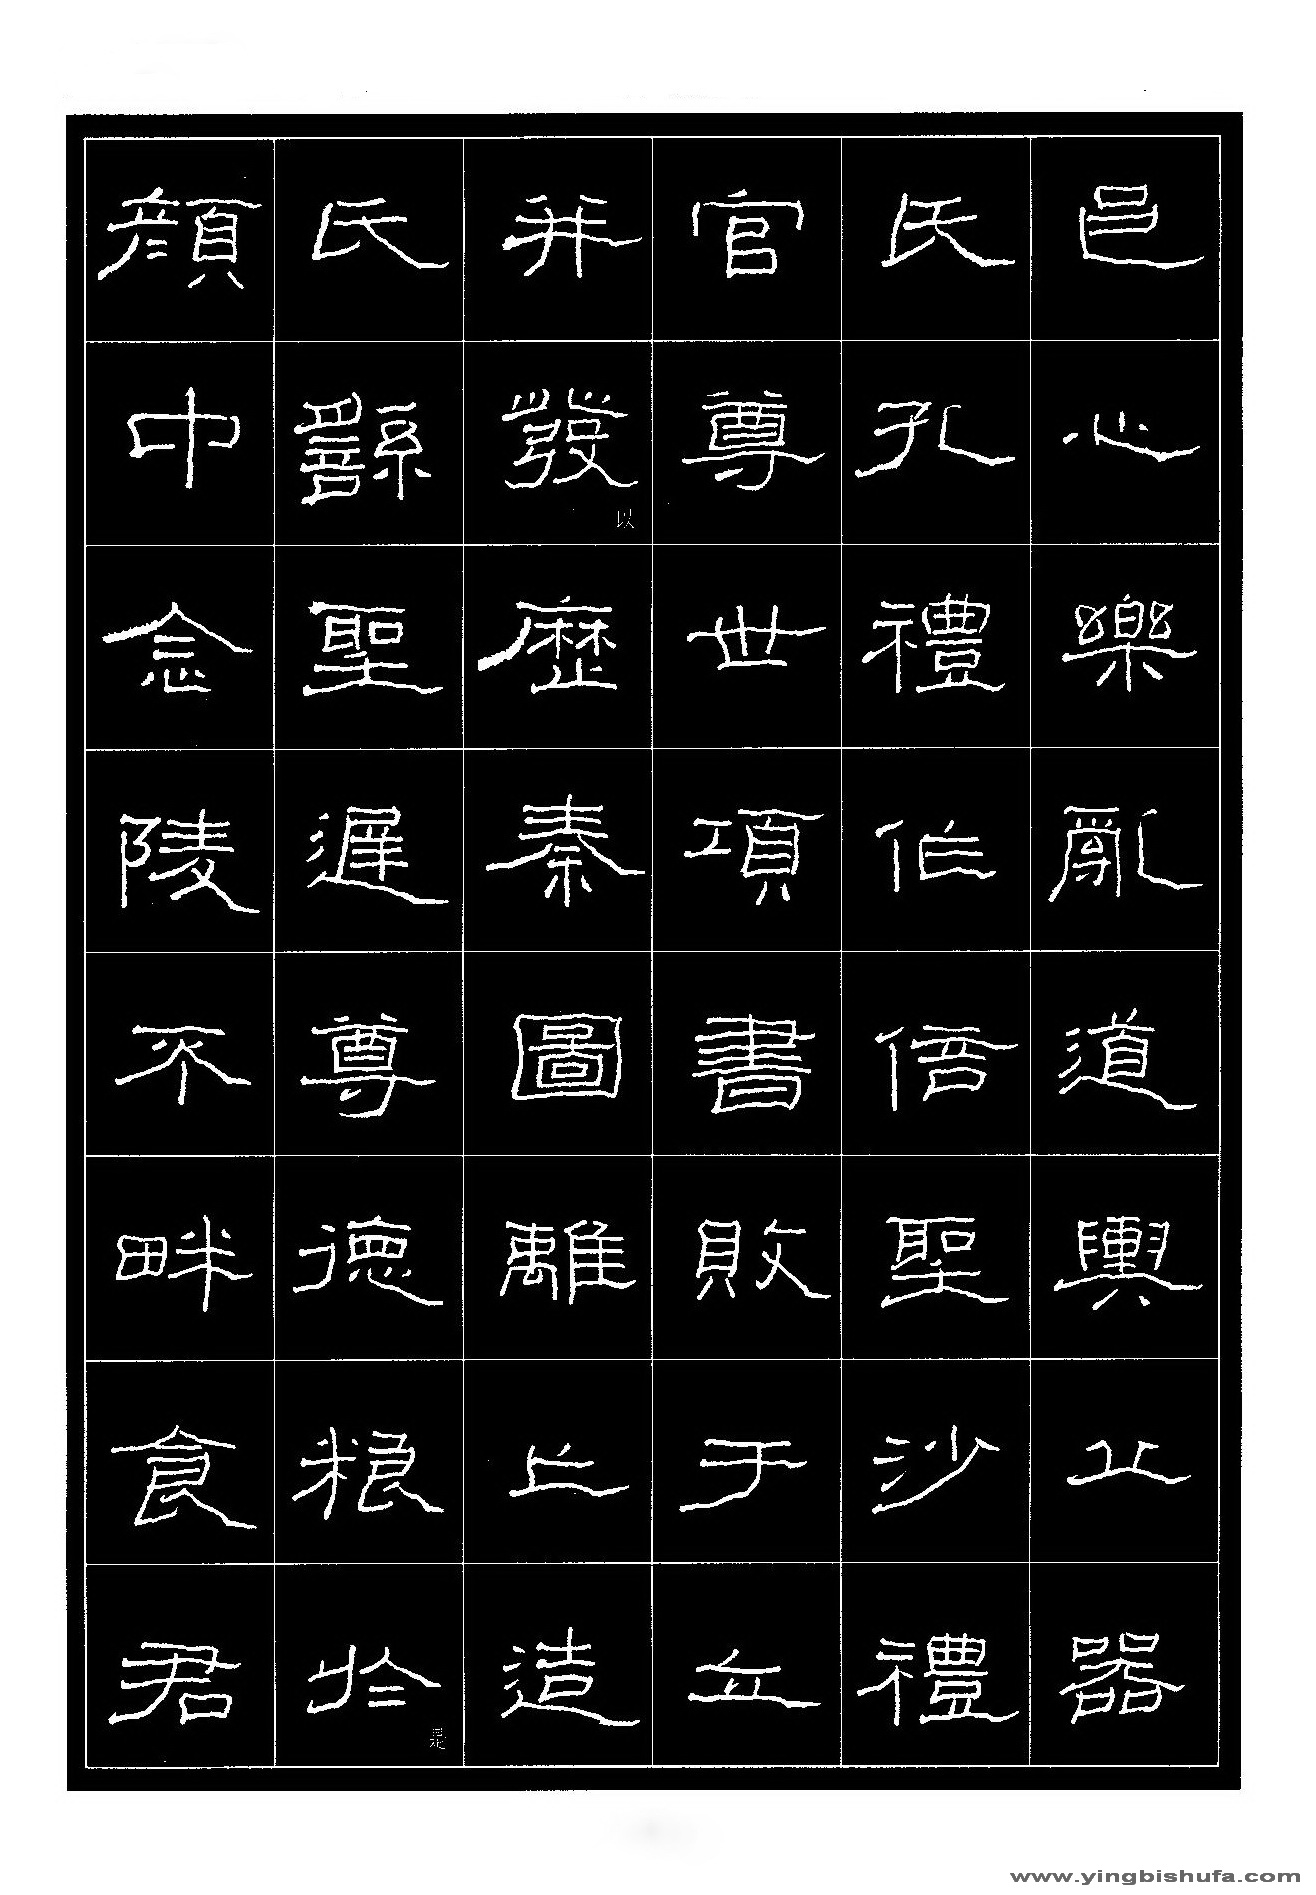 顏氏并官氏邑
中繇發以尊孔心
念聖歷世禮樂
陵遲秦項作亂
不尊圖書倍道
畔德離敗聖輿
食糧亡于沙丘
君於是造立禮器
www.yingbishufa.com